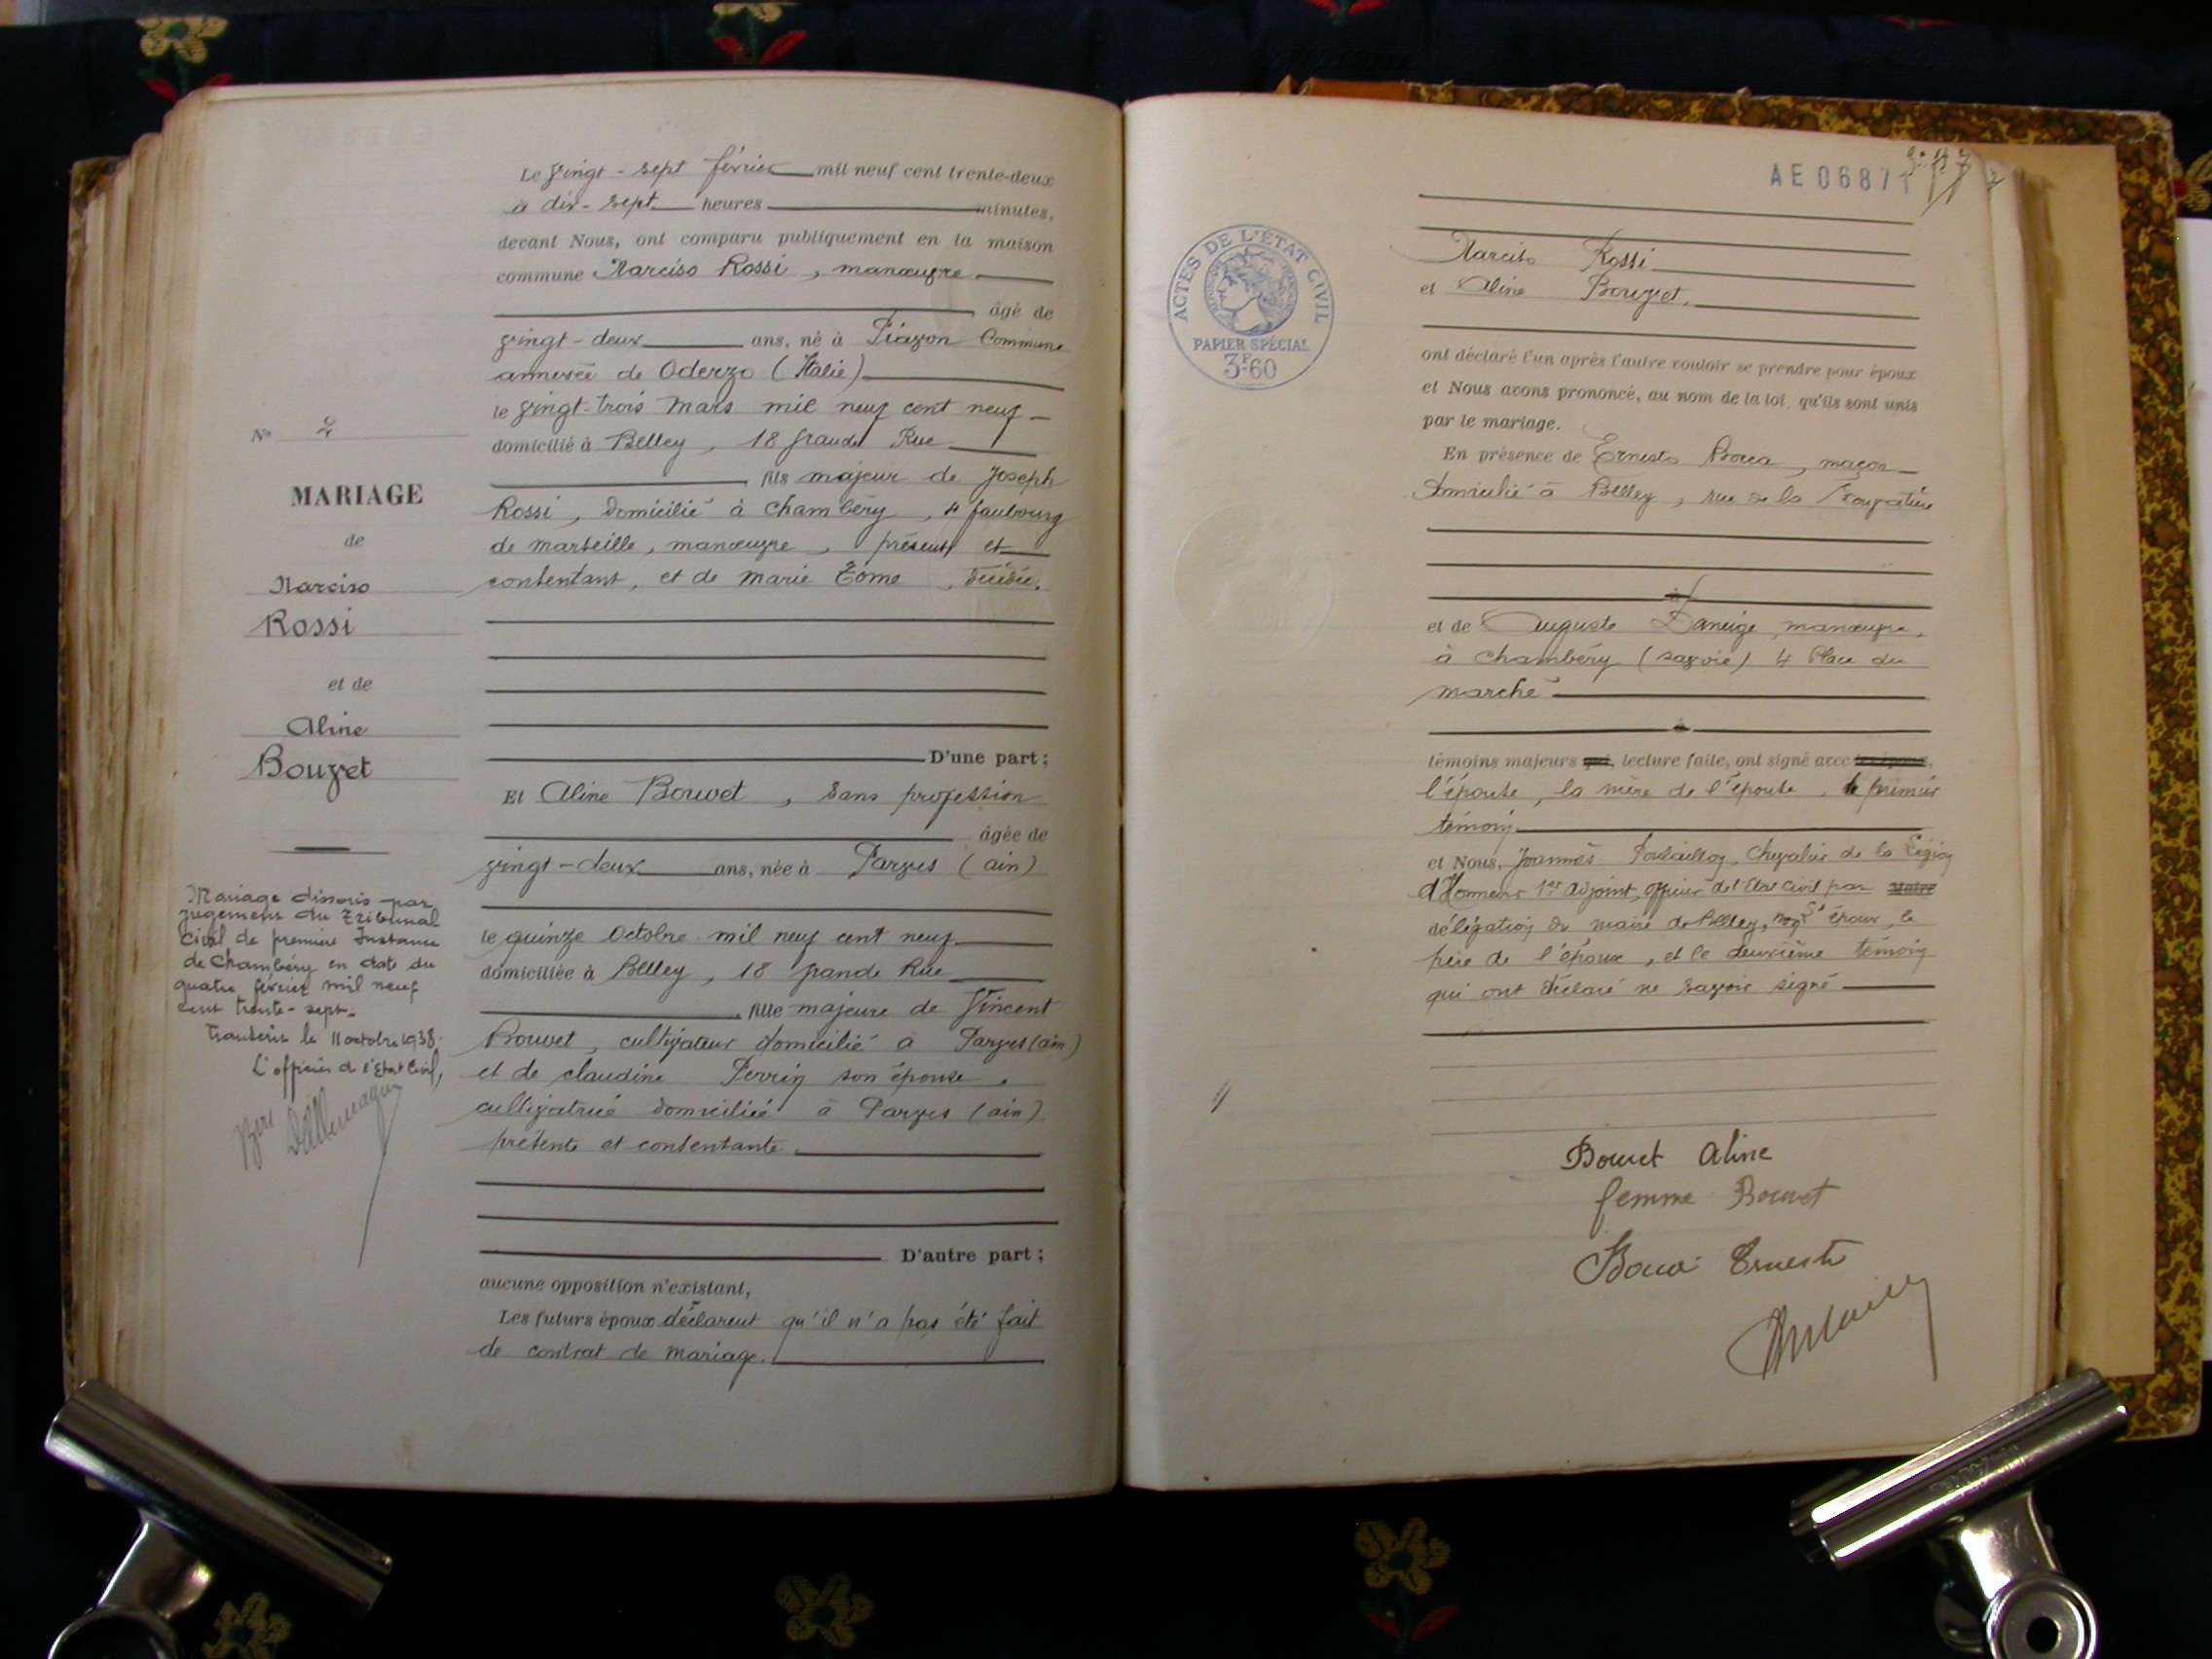 Le vingt-sept février mil neuf cent trente-deux
à dix-sept heures minutes,
devant Nous, ont comparu publiquement en la maison
commune Narciso Rossi, manœuvre
âgé de
vingt-deux ans, né à Piavon Commune
annexée de Oderzo (Italie)
le vingt-trois Mars mil neuf cent neuf
domicilié à Belley, 18 Grande Rue
fils majeur de Joseph
Rossi, domicilié à Chambéry, 4 faubourg
de Marseille, manœuvre, présent et
consentant, et de Marie Tomé, décédée.
D'une part ;
Et Aline Bouvet, sans profession
âgée de
vingt-deux ans, née à Parves (ain)
le quinze Octobre mil neuf cent neuf
domiciliée à Belley, 18 Grande Rue
fille majeure de Vincent
Bouvet, cultivateur domicilié à Parves (ain)
et de Claudine Perrin son épouse,
cultivatrice domiciliée à Parves (ain)
présente et consentante
D'autre part ;
aucune opposition n'existant,
Les futurs époux déclarent qu'il n'a pas été fait
de contrat de mariage.
No
MARIAGE
de
Narciso
Rossi
et de
Aline
Bouvet
Mariage dissous par
jugement du Tribunal
Civil de première Instance
de Chambéry en date du
quatre février mil neuf
cent trente-sept.
Transcrit le 11 octobre 1938.
L'officier de l'Etat Civil,
AE 06871
ACTES DE L'ÉTAT CIVIL
PAPIER SPÉCIAL
3F60
Narciso Rossi
et Aline Bouvet.
ont déclaré l'un après l'autre vouloir se prendre pour époux
et Nous avons prononcé, au nom de la loi, qu'ils sont unis
par le mariage.
En présence de Ernesto Bocca, maçon
domicilié à Belley, rue de la
et de Auguste Daneige, manœuvre,
à Chambéry (Savoie) 4 Place du
marché
témoins majeurs qui, lecture faite, ont signé avec les époux,
l'épouse, la mère de l'épouse, le premier
témoin
et Nous, Joannès Chevalier de la Légion
d'Honneur 1er Adjoint, officier de l'Etat Civil par Maire
délégation du maire de Belley, époux, le
père de l'époux, et le deuxième témoin
qui ont déclaré ne savoir signé
Bouvet Aline
femme Bouvet
Bocca Ernesto